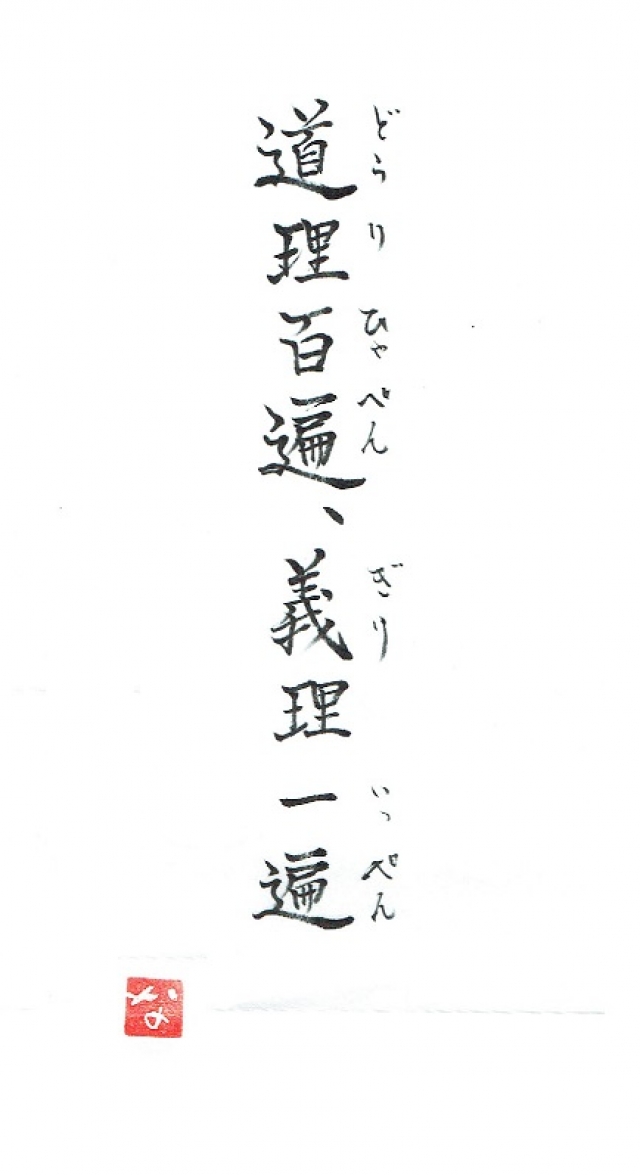 道理百遍、義理一遍
どうり ひゃぺん ぎり いっぺん
な